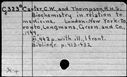 Carter, C.W. and Thompson, R.H.S.
Biochemistry in relation to
medicine. London, New York, To-
ronto, Longmans, Green, and Co.,
1949.
p. 442 p. with ill., 1 front.
Bibliogr. p. 423-432